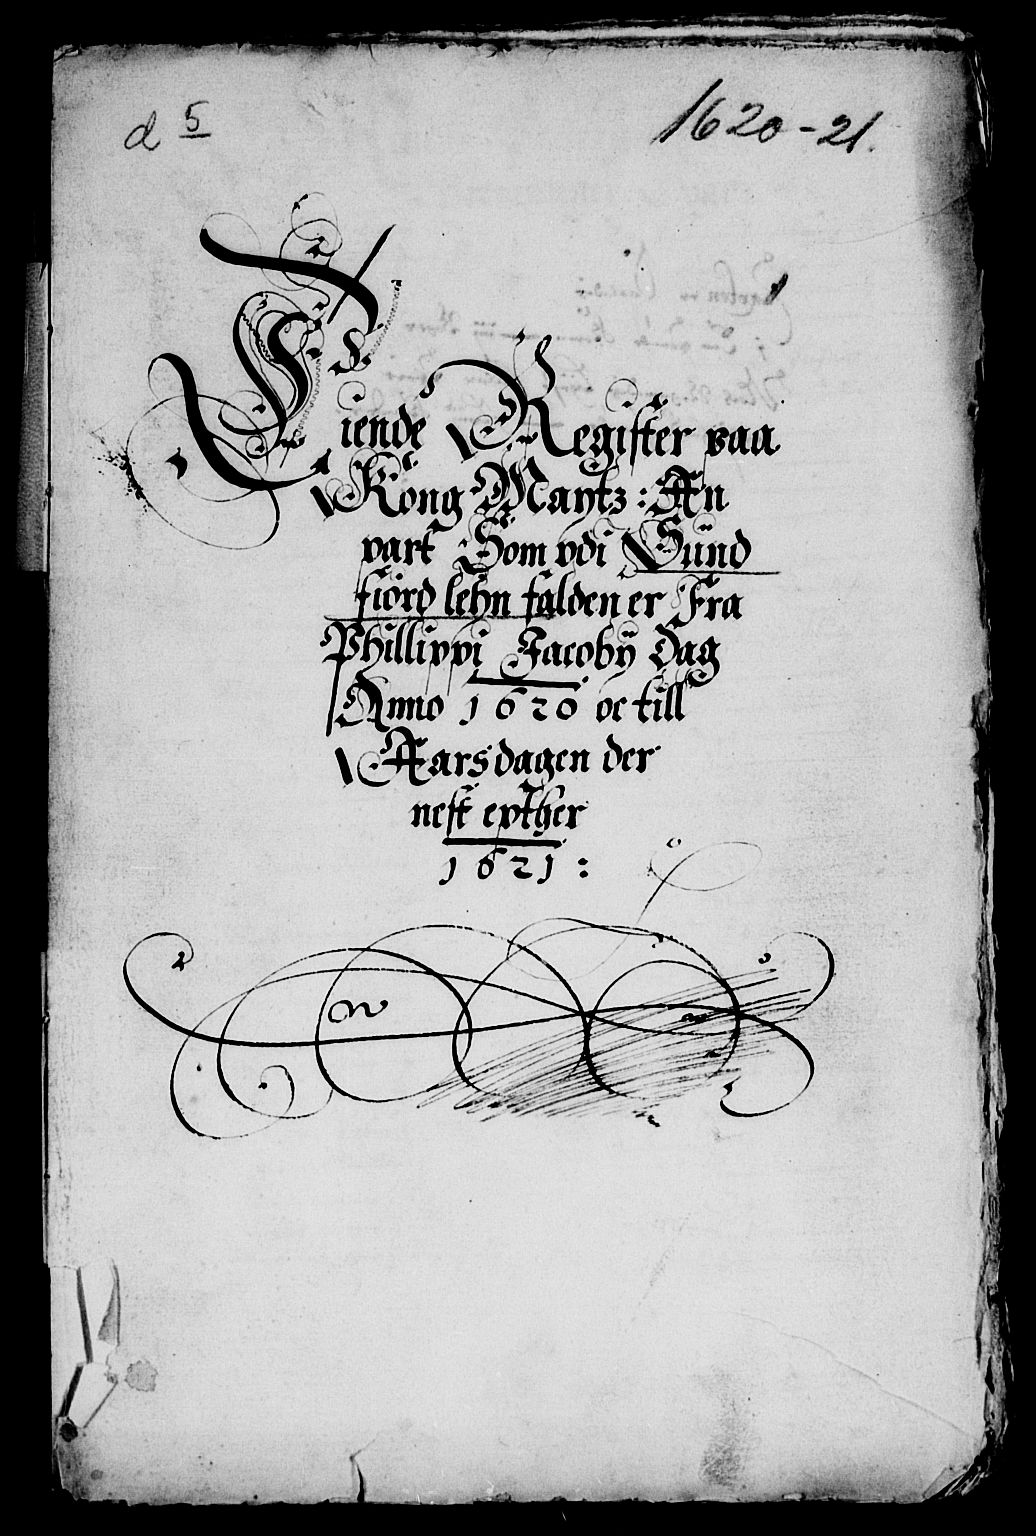 d 5
1620-21.
Tiende Register paa
Kong Mantz: An
part Som vdi Sünd
fiörd lehn falden er Fra
Phillippi Jacobÿ dag
Anno 1620 oc till
Aarsdagen der
nest epther
1621: